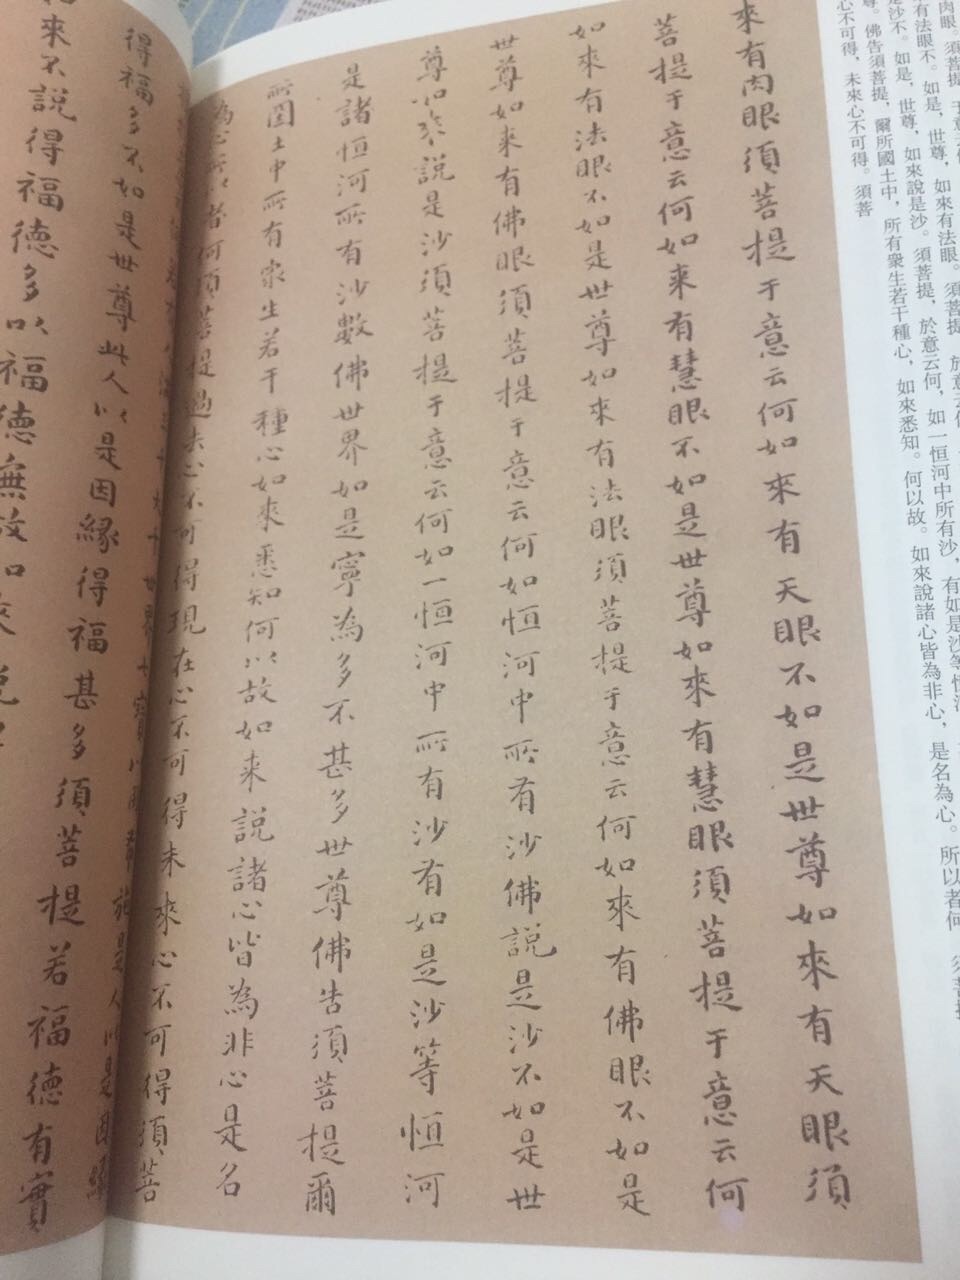 肉眼。須菩提，于意云
來有法眼不。如是，世尊，如來有法眼。須菩提，於意云何
是沙不。如是，世尊，如來說是沙。須菩提，於意云何，如一恒河中所有沙，有如是沙等恒河
尊。佛告須菩提，爾所國土中，所有衆生若干種心，如來悉知。何以故。如來說諸心皆為非心，是名為心。所以者何。須菩提
心不可得，未來心不可得。須菩
來有肉眼須菩提于意云何如來有天眼不如是世尊如來有天眼須
菩提于意云何如來有慧眼不如是世尊如來有慧眼須菩提于意云何
如來有法眼不如是世尊如來有法眼須菩提于意云何如來有佛眼不如是
世尊如來有佛眼須菩提于意云何如恒河中所有沙佛說是沙不如是世
尊如來說是沙須菩提于意云何如一恒河中所有沙有如是沙等恒河
是諸恒河所有沙數佛世界如是寧為多不甚多世尊佛告須菩提爾
所國土中所有衆生若干種心如來悉知何以故如來說諸心皆為非心是名
為心所以者何須菩提過去心不可得現在心不可得未來心不可得須菩
世界七寶以用布施是人以是因緣
得福多不如是世尊此人以是因緣得福甚多須菩提若福德有實
如來不說得福德多以福德無故如來說